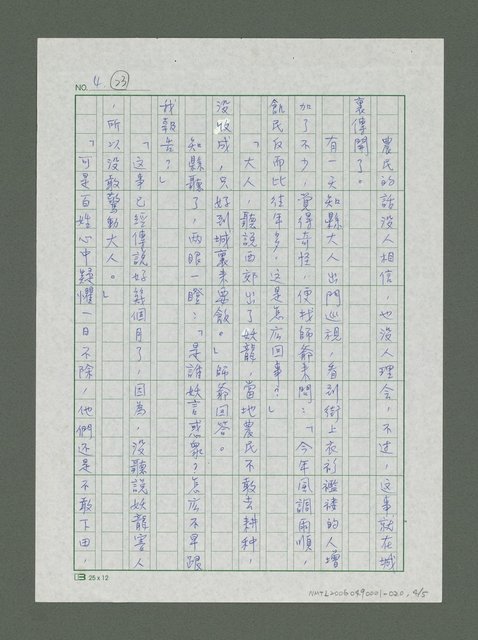 NO. 4 (23)
農民的話沒人相信，也沒人理會，不過，這事就在城
裏傳開了。
有一天知縣大人出門巡視，看到街上衣衫襤褸的人增
加了不少，覺得奇怪，便找師爺來問：「今年風調雨順，
飢民反而比往年多，這是怎広回事？」
「大人，聽說西郊出了妖龍，當地農民不敢去耕種，
沒收成，只好到城裏來要飯。」師爺回答。
知縣聽了，兩眼一瞪：「是誰妖言惑眾？怎広不早跟
我報告？」
「這事已經傳說好幾個月了，因為，沒聽說妖龍害人
，所以沒敢驚動大人。」
「可是百姓心中疑懼一日不除，他們還是不敢下田，
25×12
NMTL20060490001-020, 4/5